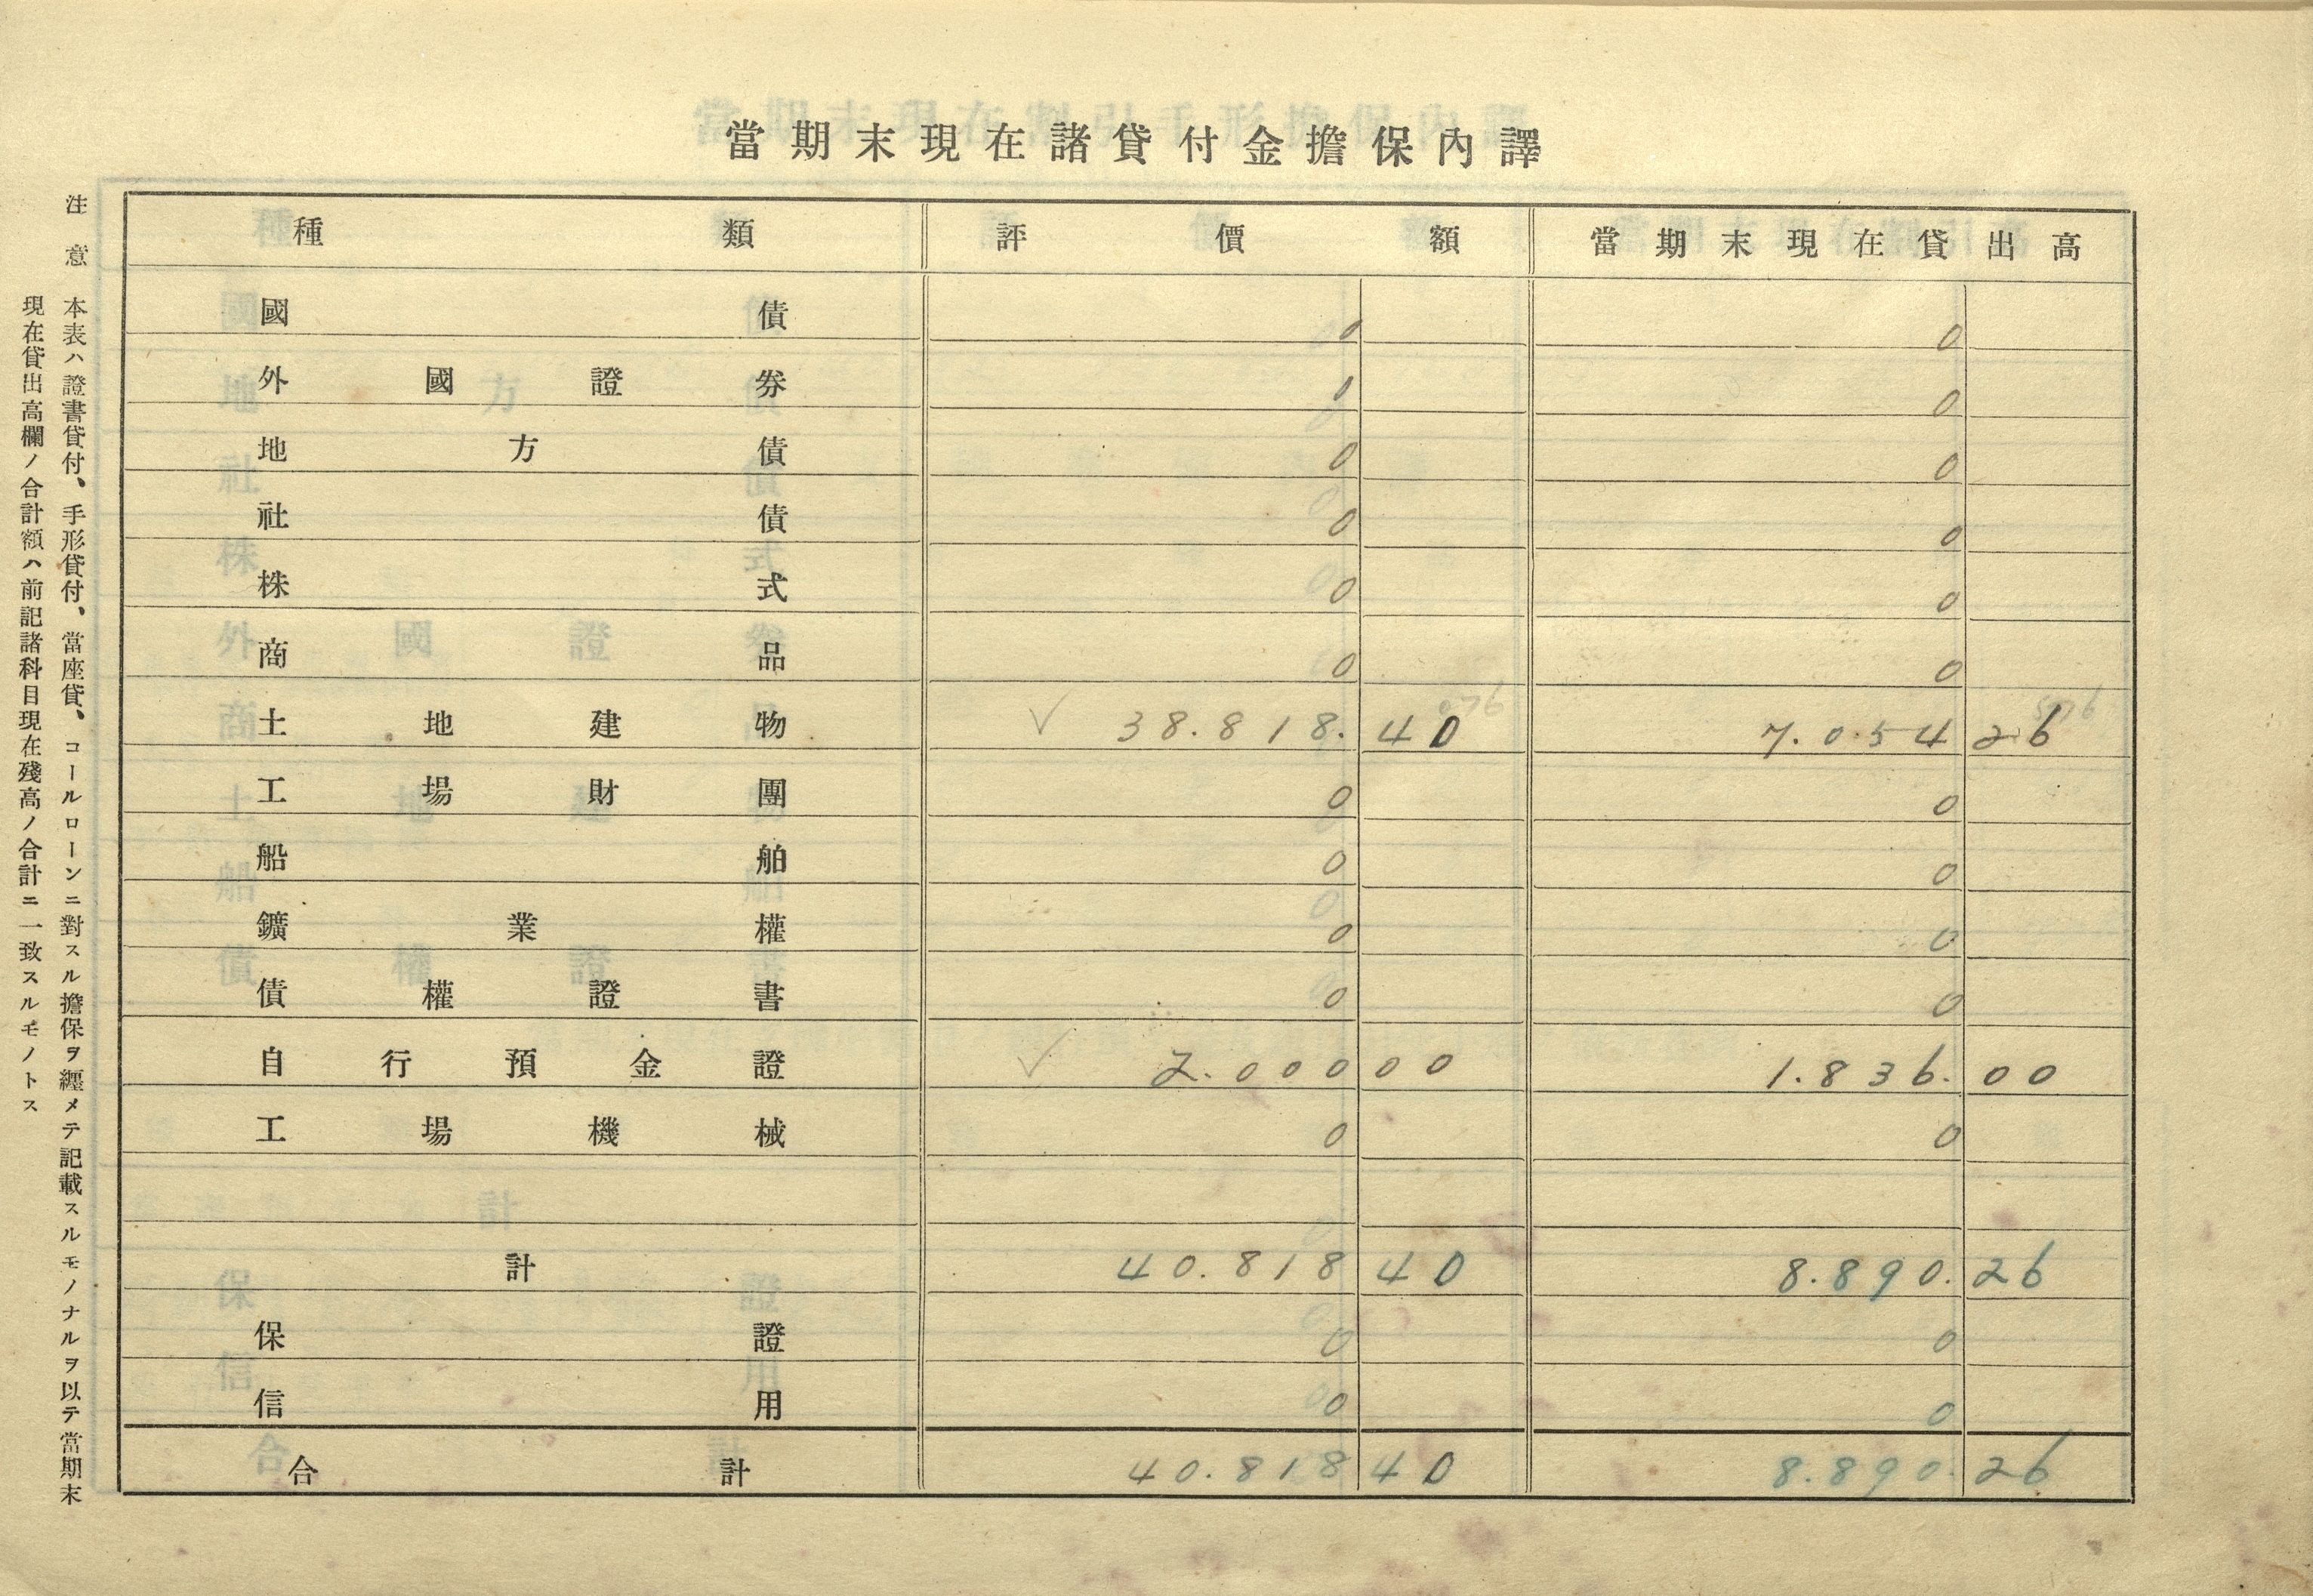 當期末現在諸貸付金擔保內譯
種類 評價額 當期末現在貸出高
國債 0 0
外國證券 0 0
地方債 0 0
社債 0 0
株式 0 0
商品 0 0
土地建物 √ 38.818. 40 7.054 26
工場財團 0 0
船舶 0 0
鑛業權 0 0
債權證書 0 0
自行預金證 √ 2.000 00 1.836. 00
工場機械 0 0
計 40.818 40 8.890. 26
保證 0 0
信用 0 0
合計 40.818 40 8.890. 26
注意
本表ハ證書貸付、手形貸付、當座貸、コールローンニ對スル擔保ヲ纒メテ記載スルモノナルヲ以テ當期末
現在貸出高欄ノ合計額ハ前記諸科目現在殘高ノ合計ニ一致スルモノトス